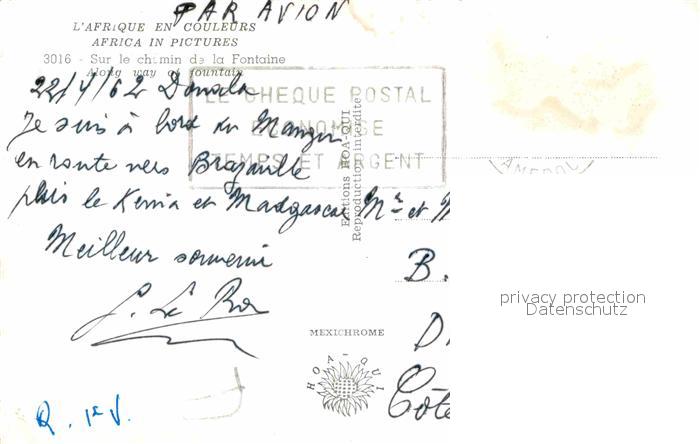 PAR AVION
L'AFRIQUE EN COULEURS
AFRICA IN PICTURES
3016 - Sur le chemin de la Fontaine
Along way of fountain
22/4/62 Douala
LE CHEQUE POSTAL
ECONOMISE
TEMPS ET ARGENT
Je suis à bord du Mangin
en route vers Brazzaville
puis le Kenia et Madagascar
Meilleur souvenir
Editions HOA-QUI
Reproduction interdite
Mr et M
B.
D
Côte
MEXICHROME
HOA-QUI
CAMEROU
privacy protection
Datenschutz
R. 1e V.